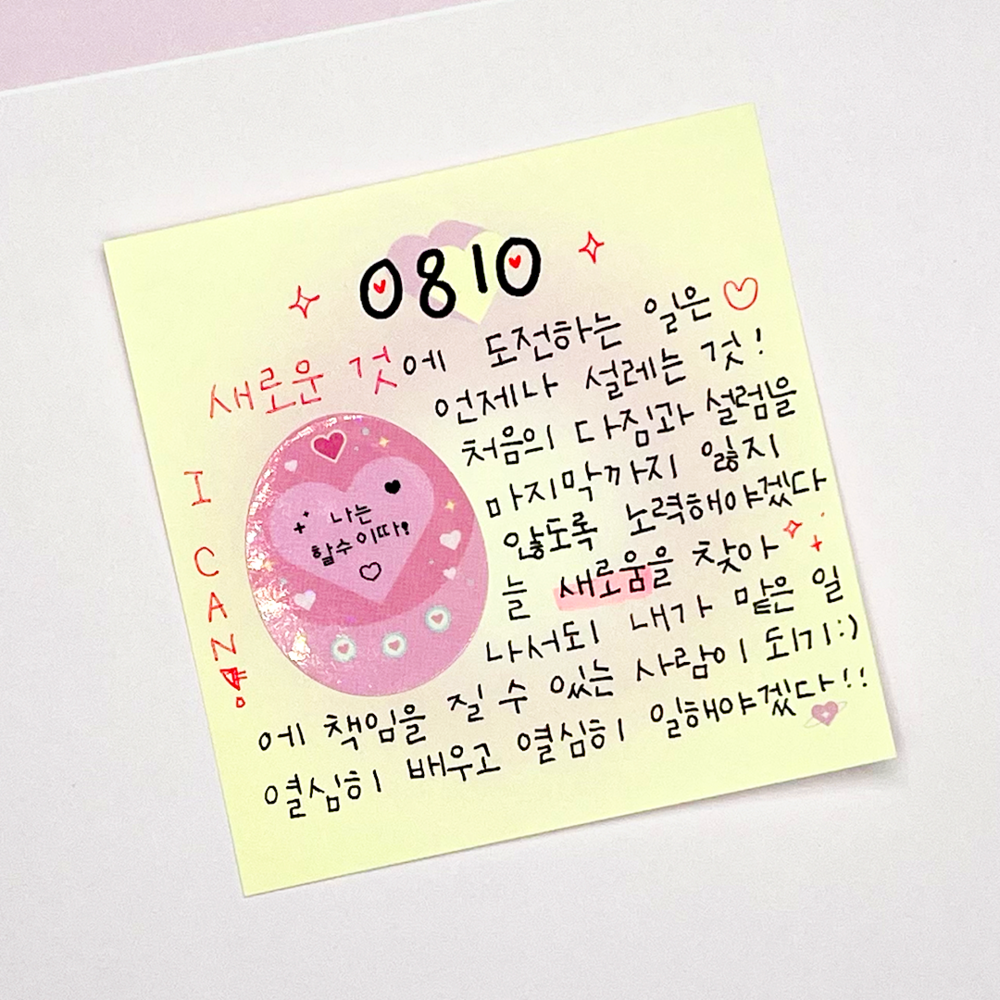 0810
새로운 것에 도전하는 일은
언제나 설레는 것!
처음의 다짐과 설렘을
마지막까지 잃지
않도록 노력해야겠다
늘 새로움을 찾아
나서되 내가 맡은 일
에 책임을 질 수 있는 사람이 되기:)
열심히 배우고 열심히 일해야겠다!!
I CAN!
나는
할수이따!